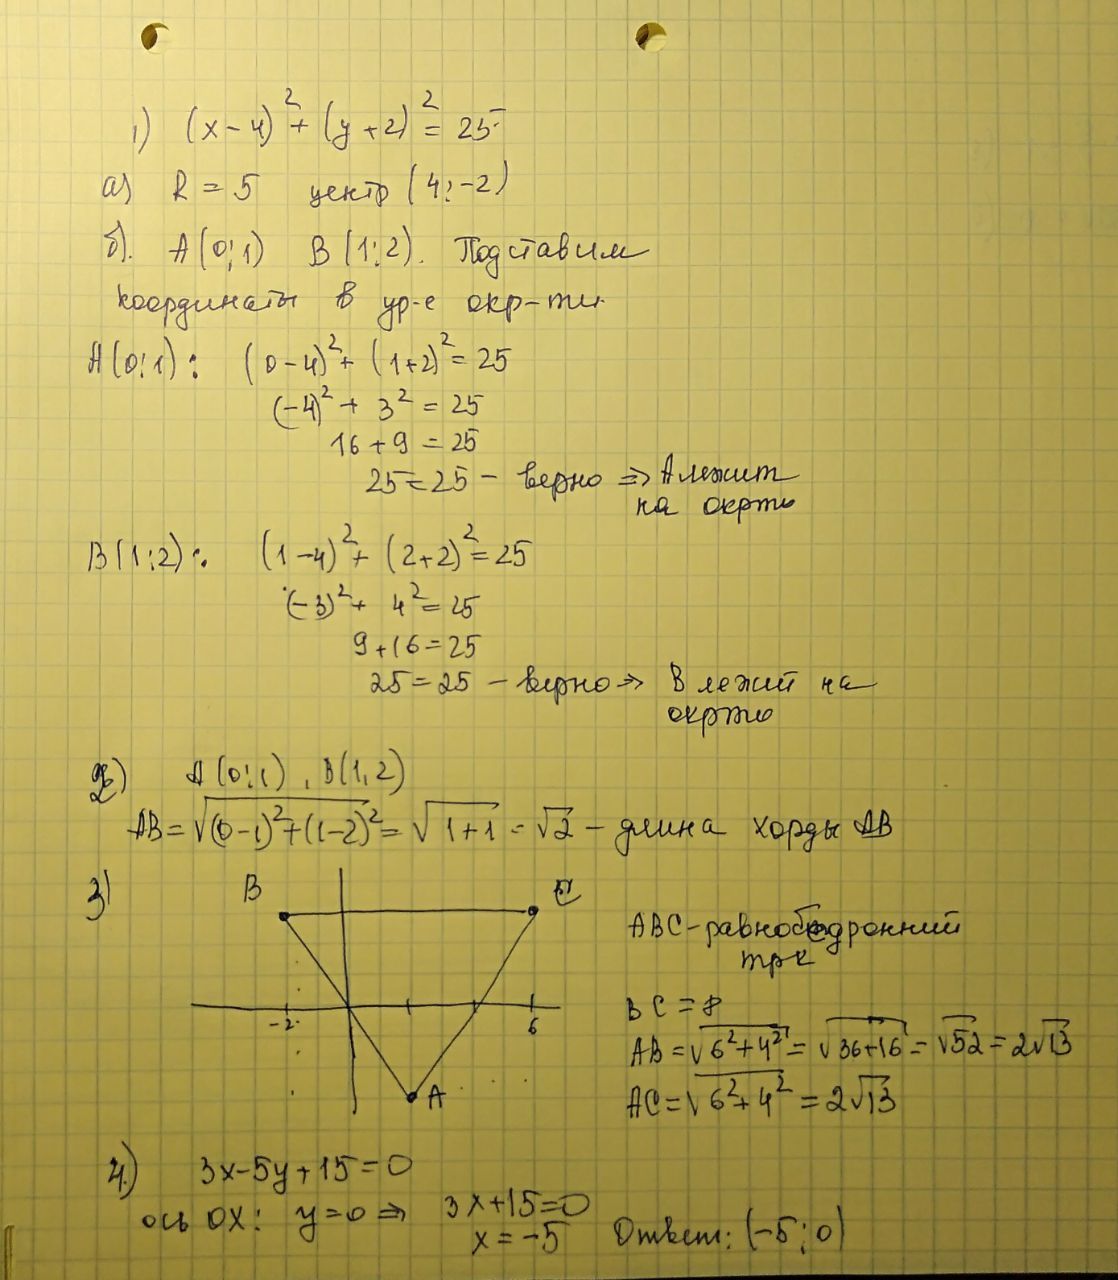 1) (x-4)² + (y+2)² = 25
а) R = 5 центр (4;-2)
б). A(0;1) B(1;2). Подставим
координаты в ур-е окр-ти
A(0;1): (0-4)² + (1+2)² = 25
(-4)² + 3² = 25
16 + 9 = 25
25 = 25 - верно ⇒ A лежит
на окрти
B(1;2): (1-4)² + (2+2)² = 25
(-3)² + 4² = 25
9 + 16 = 25
25 = 25 - верно ⇒ B лежит на
окрти
2) A(0;1), B(1,2)
AB = √(0-1)²+(1-2)² = √1+1 = √2 - длина хорды AB
3)
B C
-2 6
A
ABC - равнобедронний
трк
BC = 8
AB = √6²+4² = √36+16 = √52 = 2√13
AC = √6²+4² = 2√13
4.) 3x-5y+15=0
ось OX: y=0 ⇒ 3x+15=0
x = -5 Ответ: (-5;0)